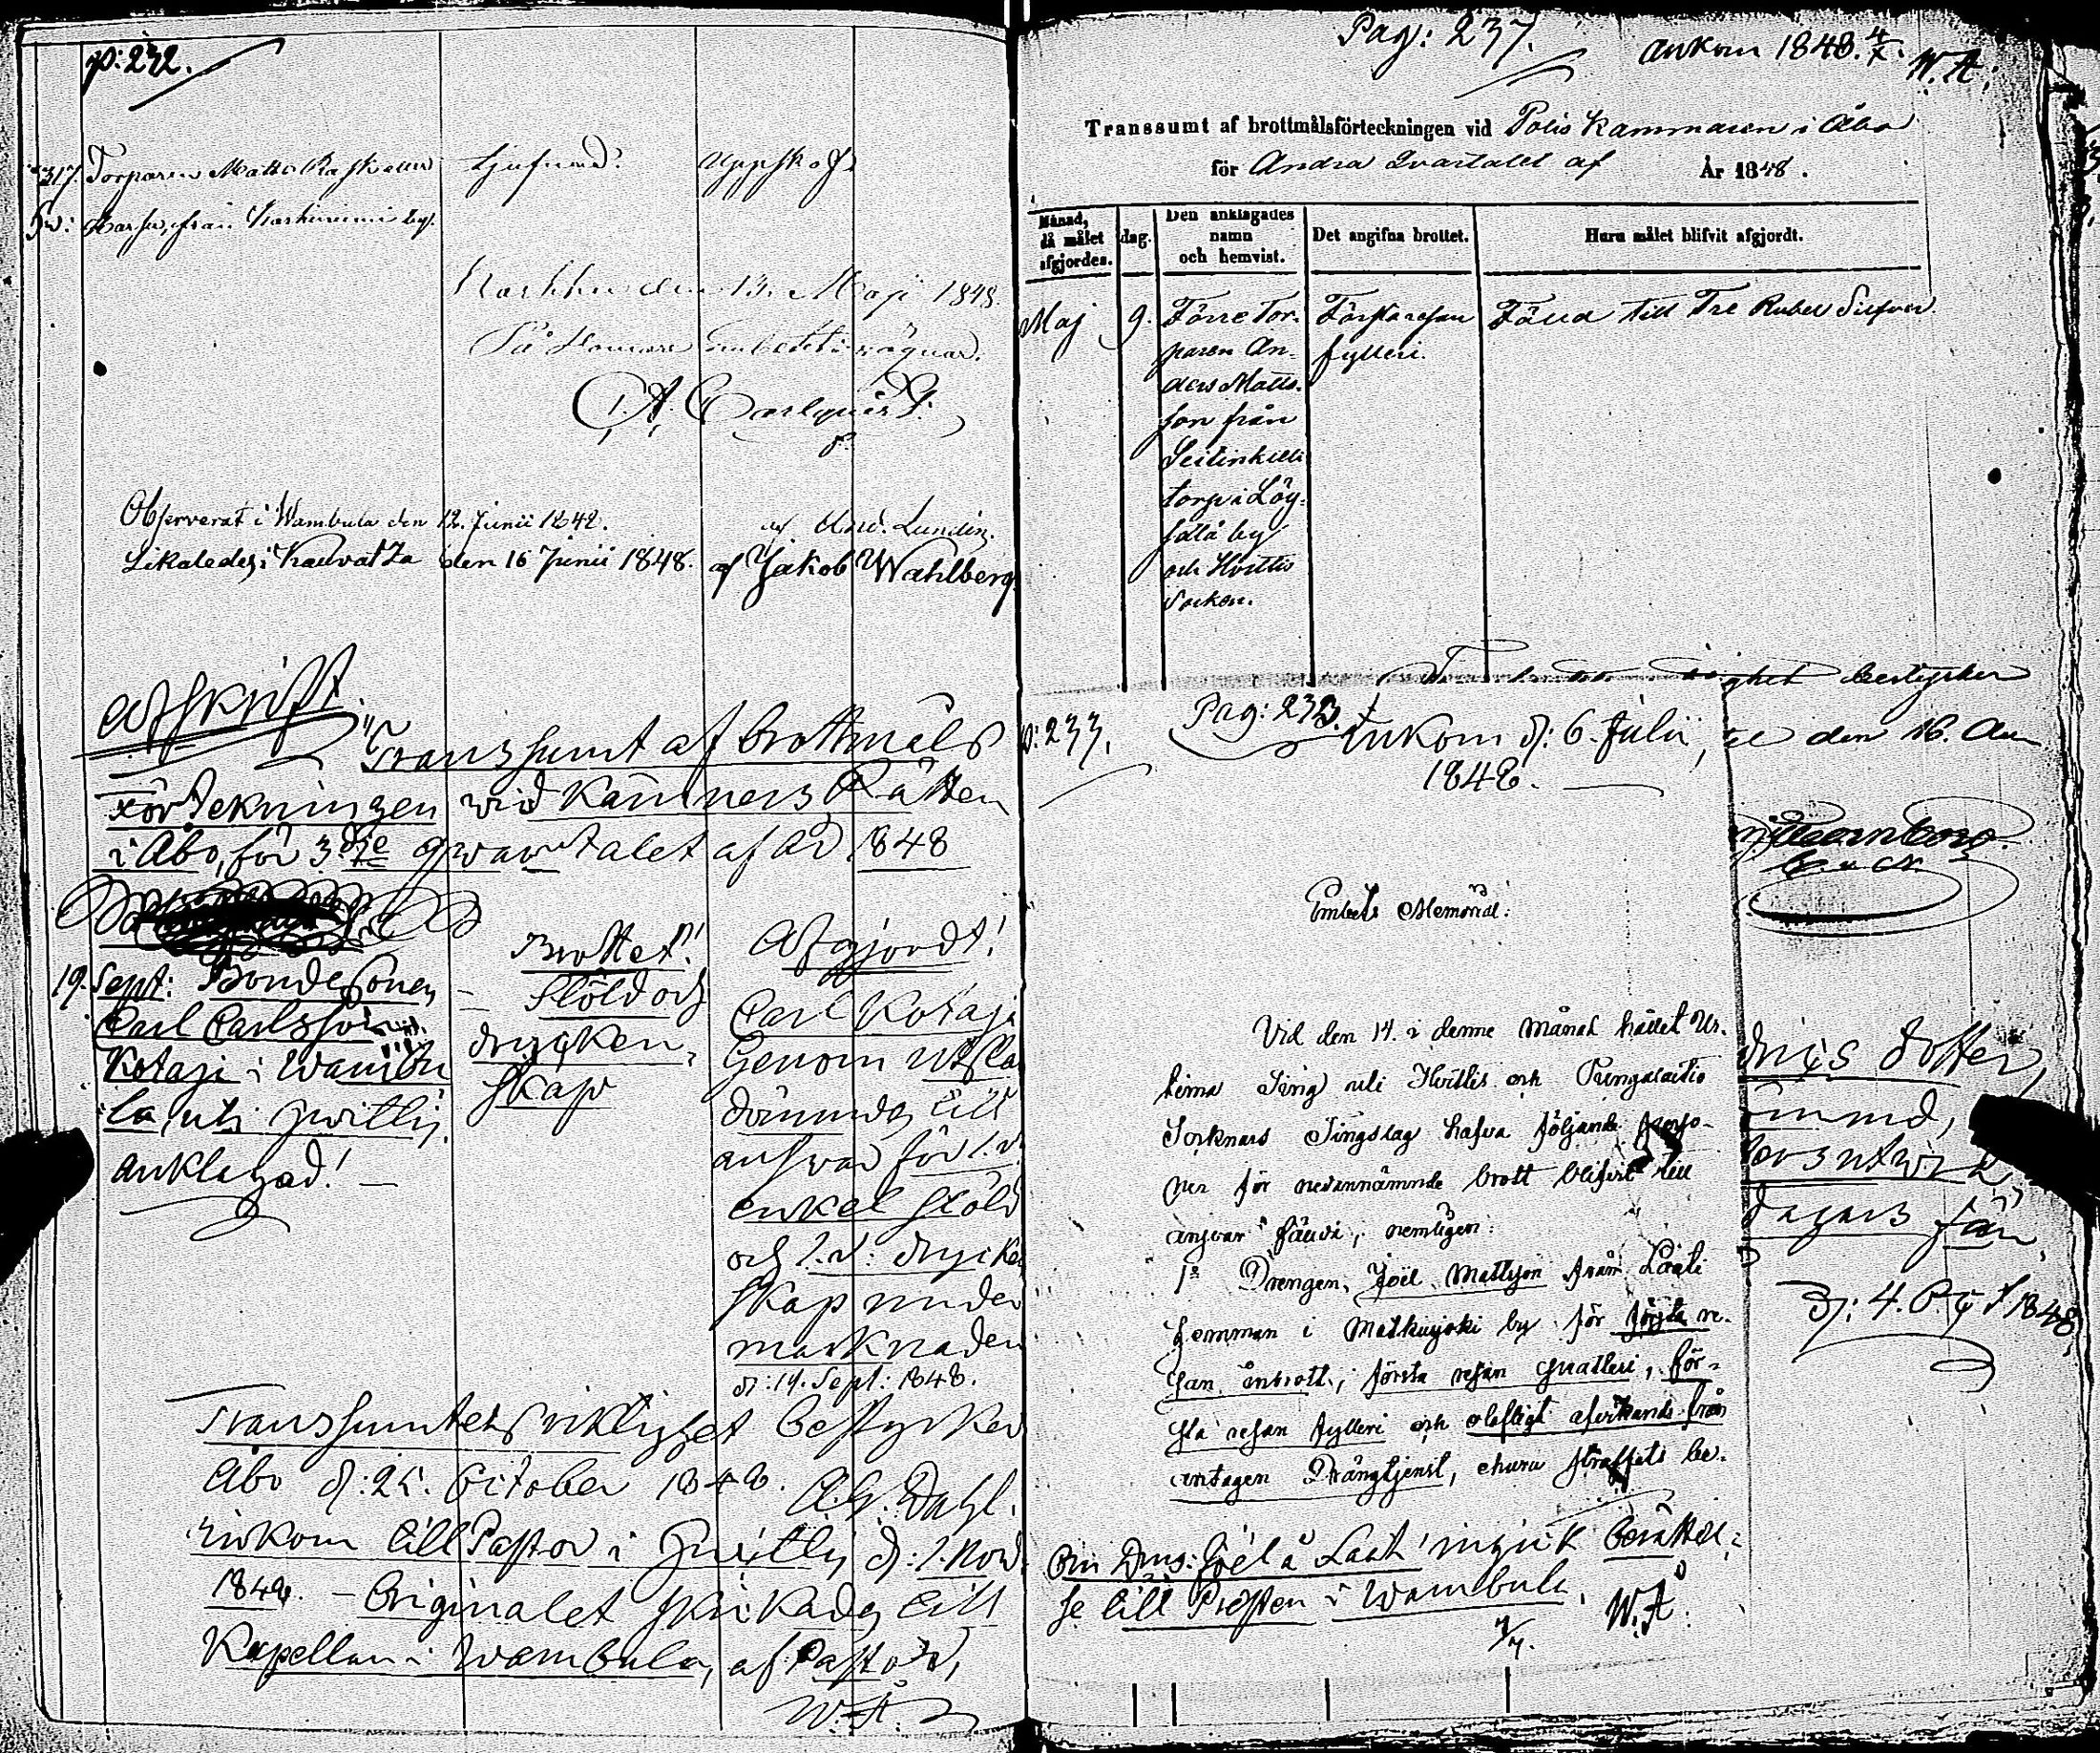 p: 232.
317. Torparen Matts
från Karhiniemi by.
den 13. Maji 1848.
På Hans Embetets vägnar.
Observerat i Wambula den 12. Junii 1848. af And. Lundin.
Likaledes i Kauvatza den 16 Junii 1848. af Jakob Wahlberg.
Afskrift.
Transsumt af brottmåls
förtekningen wid Kämners Rätten
i Åbo, för 3:dje qwartalet af År 1848
Brottet! Afgjordt!
19. Sept: Bondesonen
Carl Carlsson
Kotaja i Wambu
la, uti Hwittis.
anklagad! —
Stöld och
drycken-
skap
Carl Kotaja
Genom utsla
dömmdes till
answar för 1. r.
enkel stöld
och 1. r: drycken
skap under
marknaden
d: 14. Sept: 1848.
Transsumtets riktighet bestyrker
Åbo d: 25. October 1848. A. G. Dahl.
inkom till Pastor i Hwittis d: 1. Nov.
1848. — Originalet skickades till
Kapellan i Wambula, af Pastor,
W. Å.
Pag: 237. ankom 1848. 4/X. W. Å.
Transsumt af brottmålsförteckningen vid Polis Kammaren i Åbo
för Andra Qvartalet af År 1848.
Månad, då målet afgjordes.
dag.
Den anklagades namn och hemvist.
Det angifna brottet.
Huru målet blifvit afgjordt.
Maj 9. Förre Tor-
paren An-
ders Matts-
son från
torp i Löy-
sälä by
och Hvittis
Socken.
Första resan
fylleri.
Fälld till Tre Rubel Silfver.
bestyrker
den 16. Au
p: 233.
Pag: 233. Inkom d: 6. Julii,
1848.
Embets Memorial:
Vid den 14. i denne Månad hållet Ur-
tima Ting uti Hvittis och Pungalaitio
Socknars Tingslag hafva följande perso-
ner för nedannämnde brott blifvit till
answar fällde, nemligen:
1o Drengen, Joël Mattsson från Laati
hemman i Matkusjoki by för första re-
san inbrott, första resan snatteri, för-
sta resan fylleri och olofligt afvikande från
antagen Drängtjenst, ehuru straffets be-
Om Dreng: Joël å Laati ingick berättel-
se till Presten i Wambula. W. Å.
7/7.
dotter,
dagars fän
D: 4. Oct 1848